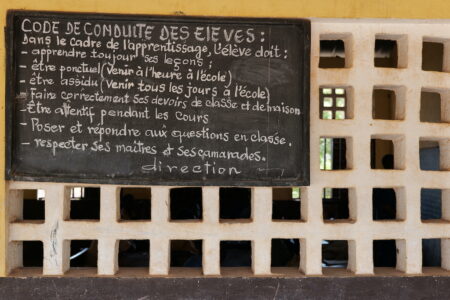 CODE DE CONDUITE DES ELEVES :
Dans le cadre de l'apprentissage, l'élève doit :
- apprendre toujour ses leçons ;
- être ponctuel (Venir à l'heure à l'école)
- être assidu (Venir tous les jours à l'école)
- Faire correctement ses devoirs de classe et de maison
- Être attentif pendant les cours
- Poser et repondre aux questions en classe.
- respecter ses maîtres et ses camarades.
direction